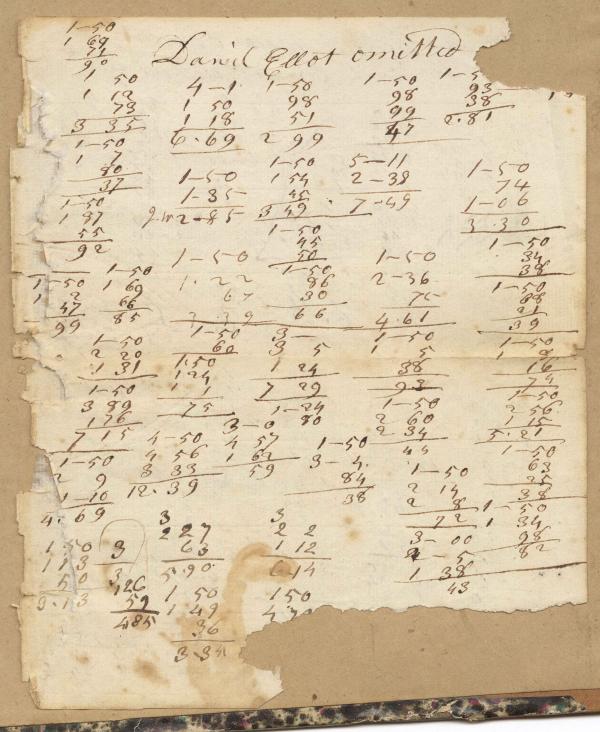 1-50
1 69
71
90
Daniel Ellot omitted
50
1 12
73
3 35
4-1
1 50
1 18
6.69
1-50
98
51
2 99
1-50
98
99
47
93
38
2.81
1-50
1 7
80
37
1-50
1-35
2-85
1-50
1 54
45
3 49
5-11
2-38
7-49
1-50
74
1-06
3.30
1-50
1 87
55
92
1-50
45
50
1-50
34
38
1-50
1-22
67
1-50
86
30
66
1-50
2-36
75
4.61
1-50
88
21
39
1-50
47
99
1-50
1 69
66
85
1-50
2 20
1 31
1-50
60
1-50
124
75
3 5
1 24
7 29
1-50
1 5
38
93
1-50
16
74
1-50
3 89
176
7 15
1-24
80
1-50
2 60
2 34
44
1-50
2 56
1 15
5.21
1-50
2 9
1-10
4.69
4-50
4 56
3 33
12.39
3-0
4 57
1 62
59
1-50
3-4
84
38
1-50
2 14
2 8
72
1-50
63
25
38
1-50
1 34
98
82
1 50
113
50
3.13
3
3
126
59
485
3
227
63
5.90
1 50
1 49
36
3.35
3
2 2
1 12
6.14
150
3-00
1 38
43